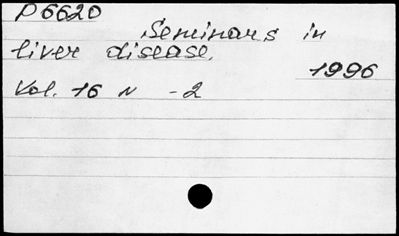 P6620
Seminars in
liver disease.
1996
Vol. 16 N -2